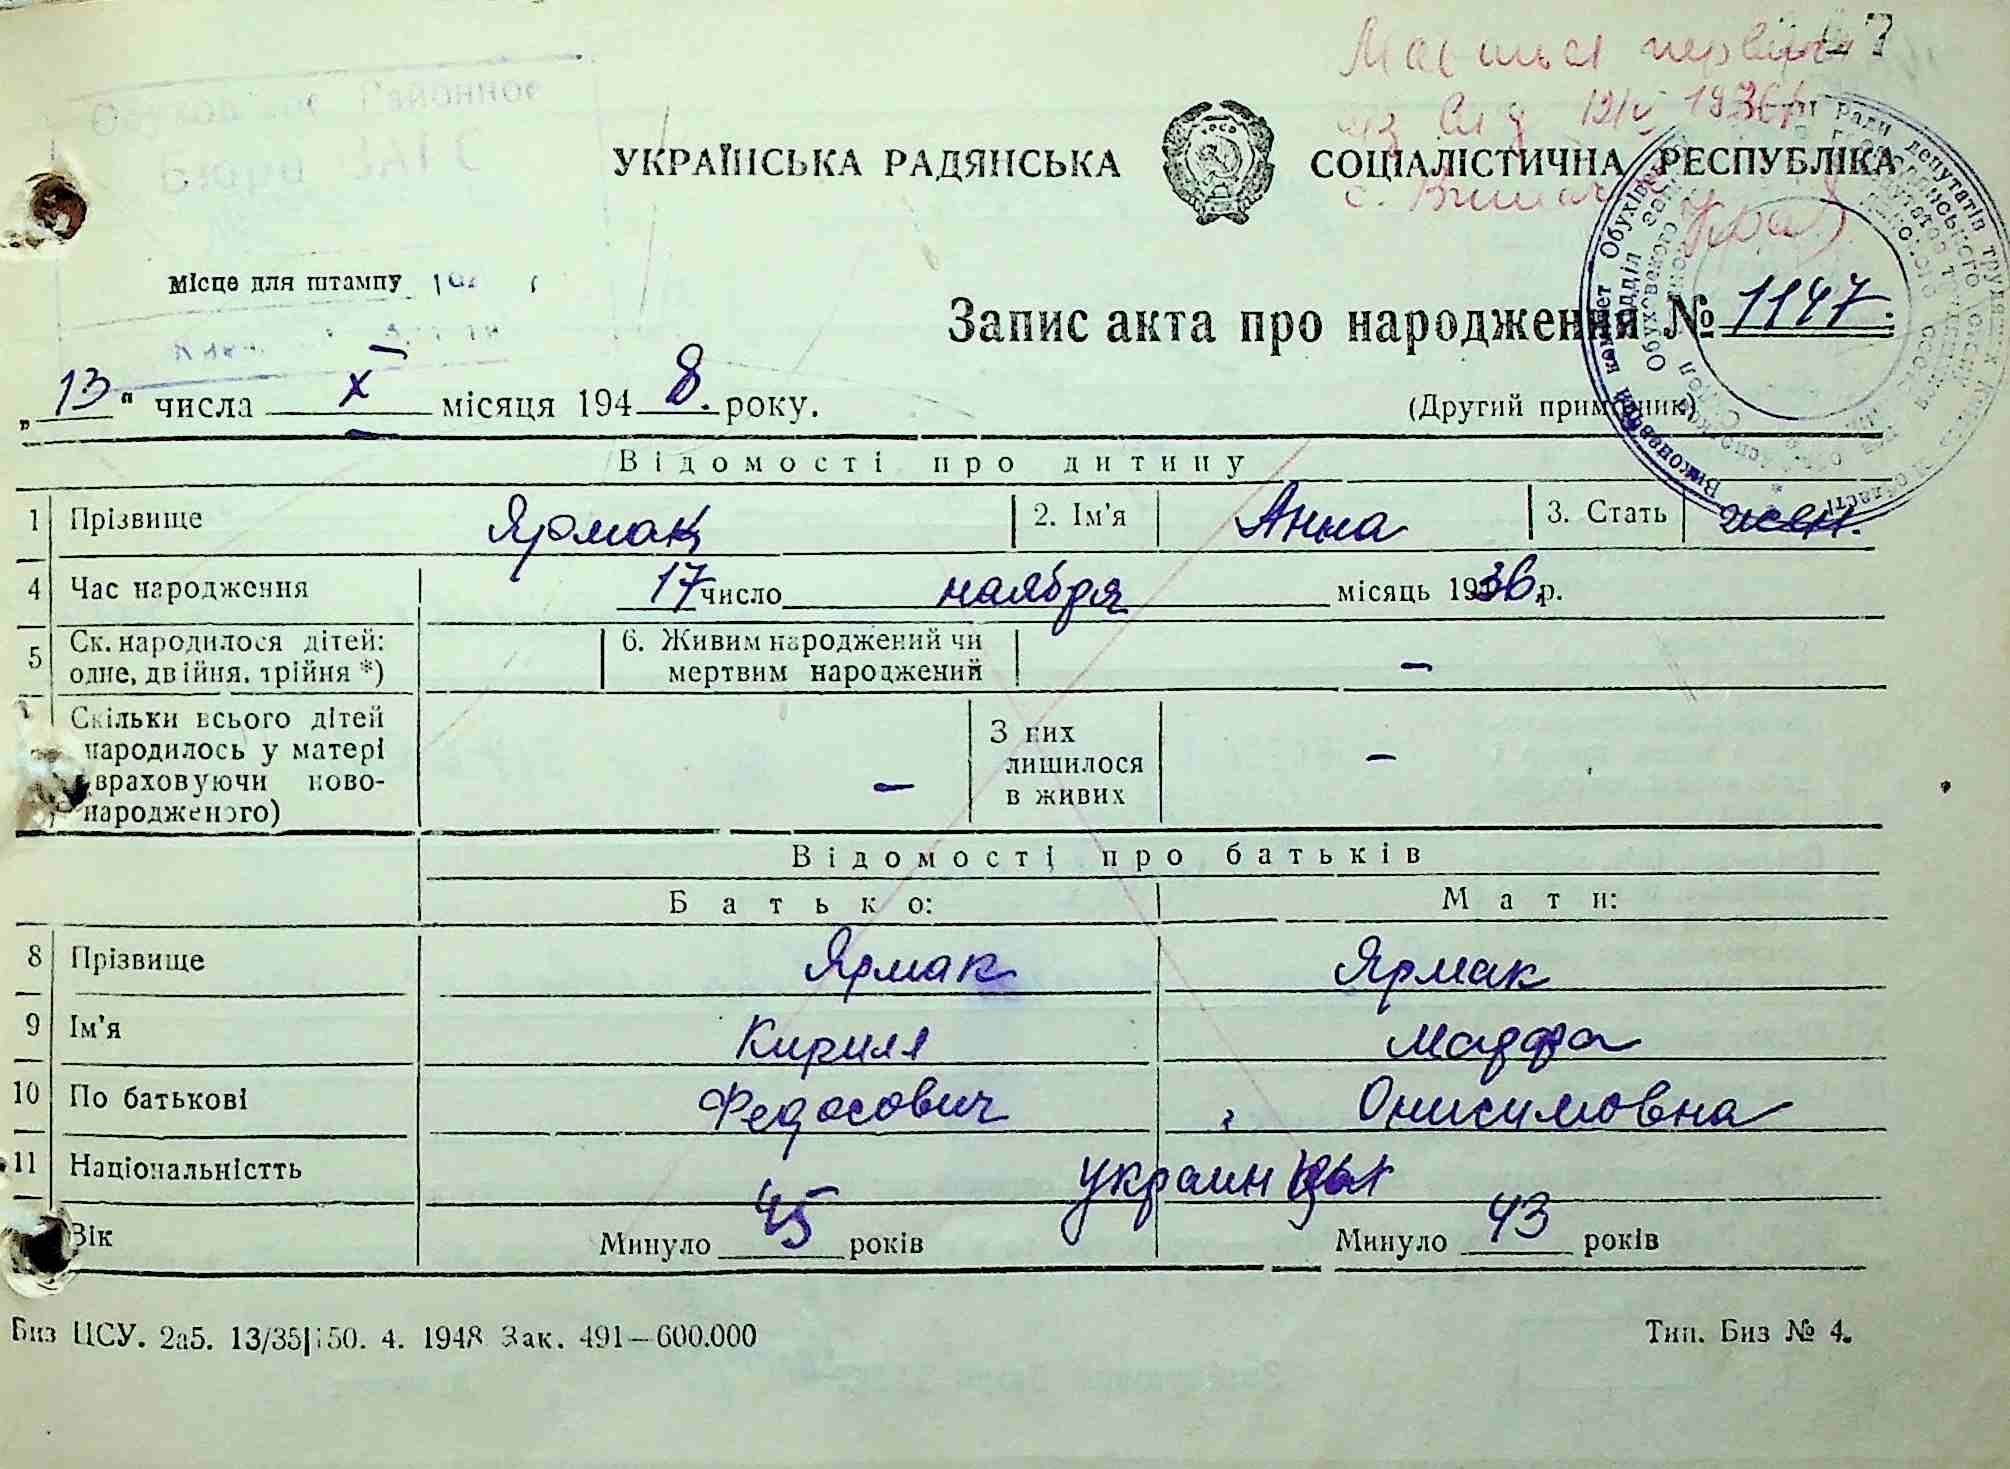 Районное
Бюро ЗАГС
УКРАЇНСЬКА РАДЯНСЬКА СОЦІАЛІСТИЧНА РЕСПУБЛІКА
Місце для штампу
Запис акта про народження № 1147.
„13“ числа X місяця 1948. року.
(Другий примірник)
Відомості про дитину
1 Прізвище Ярмак 2. Ім'я Анна 3. Стать жен.
4 Час народження 17 число наября місяць 1936 р.
5 Ск. народилося дітей: одне, двійня, трійня *) 6. Живим народжений чи мертвим народжений –
Скільки всього дітей народилось у матері враховуючи новонародженого) – З них лишилося в живих –
Відомості про батьків
Батько: Мати:
8 Прізвище Ярмак Ярмак
9 Ім'я Кирилл
10 По батькові Федосович Онисимовна
11 Національністть украинцы
Вік Минуло 45 років Минуло 43 років
Биз ЦСУ. 2а5. 13/35 50. 4. 1948 Зак. 491—600.000 Тип. Биз № 4.